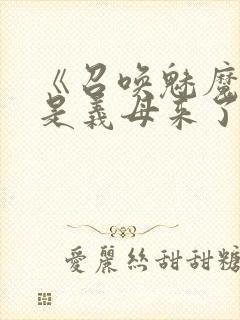 《召喚魅魔
是義母来了
愛麗絲甜甜糖